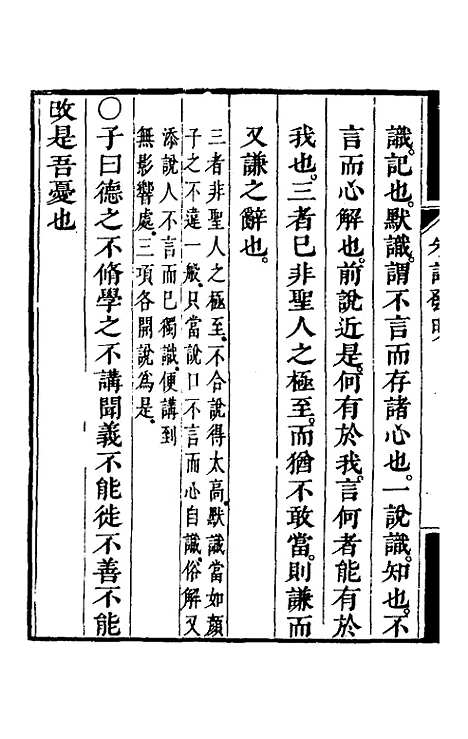 識。記也。默識。謂不言而存諸心也。一說識。知也。不
言而心解也。前說近是。何有於我。言何者能有於
我也。三者已非聖人之極至。而猶不敢當。則謙而
又謙之辭也。
三者非聖人之極至。不合說得太高。默識當如顏
子之不違一般。只當說口不言而心自識。俗解又
添說人不言而已獨識。便講到
無影響處。三項各開說為是。
○子曰德之不脩學之不講聞義不能徙不善不能
改是吾憂也